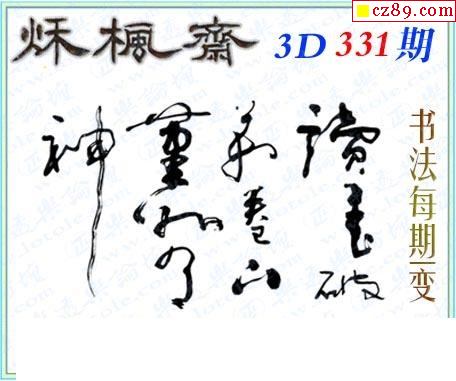 cz89.com
秌楓齋 3D 331期
讀書破
万卷下
筆如有
神
书法每期一变